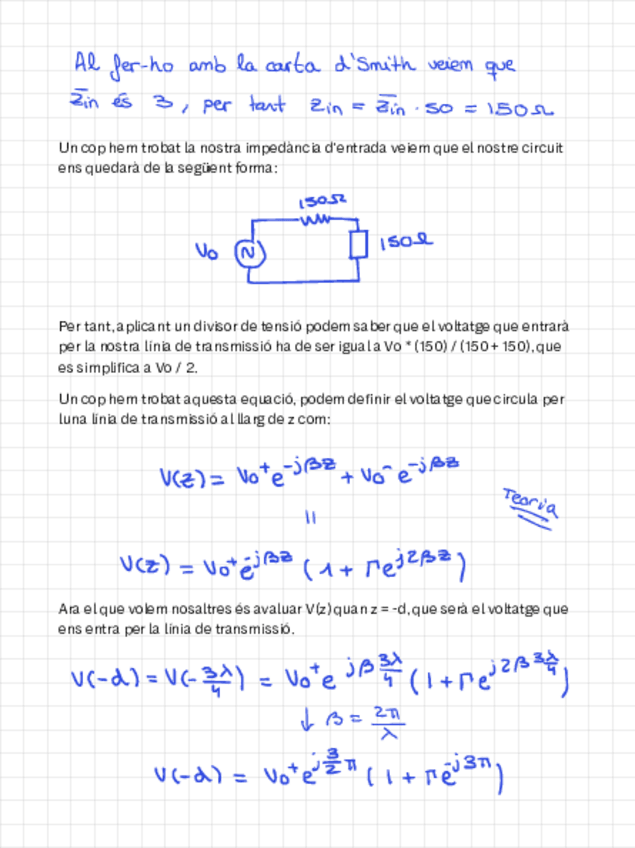 Al fer-ho amb la carta d'Smith veiem que
z̅in és 3, per tant zin = z̅in · 50 = 150Ω
Un cop hem trobat la nostra impedància d'entrada veiem que el nostre circuit
ens quedarà de la següent forma:
150Ω
Vo
N
150Ω
Per tant, aplicant un divisor de tensió podem saber que el voltatge que entrarà
per la nostra línia de transmissió ha de ser igual a Vo * (150) / (150 + 150), que
es simplifica a Vo / 2.
Un cop hem trobat aquesta equació, podem definir el voltatge que circula per
luna línia de transmissió al llarg de z com:
V(z) = Vo⁺e^-jβz + Vo⁻e^-jβz
Teoria
=
V(z) = Vo⁺e^-jβz (1 + Γe^j2βz)
Ara el que volem nosaltres és avaluar V(z) quan z = -d, que serà el voltatge que
ens entra per la línia de transmissió.
V(-d) = V(-3λ/4) = Vo⁺e^jβ3λ/4 (1 + Γe^j2β3λ/4)
↓ β = 2π/λ
V(-d) = Vo⁺e^j3/2π (1 + Γe^-j3π)